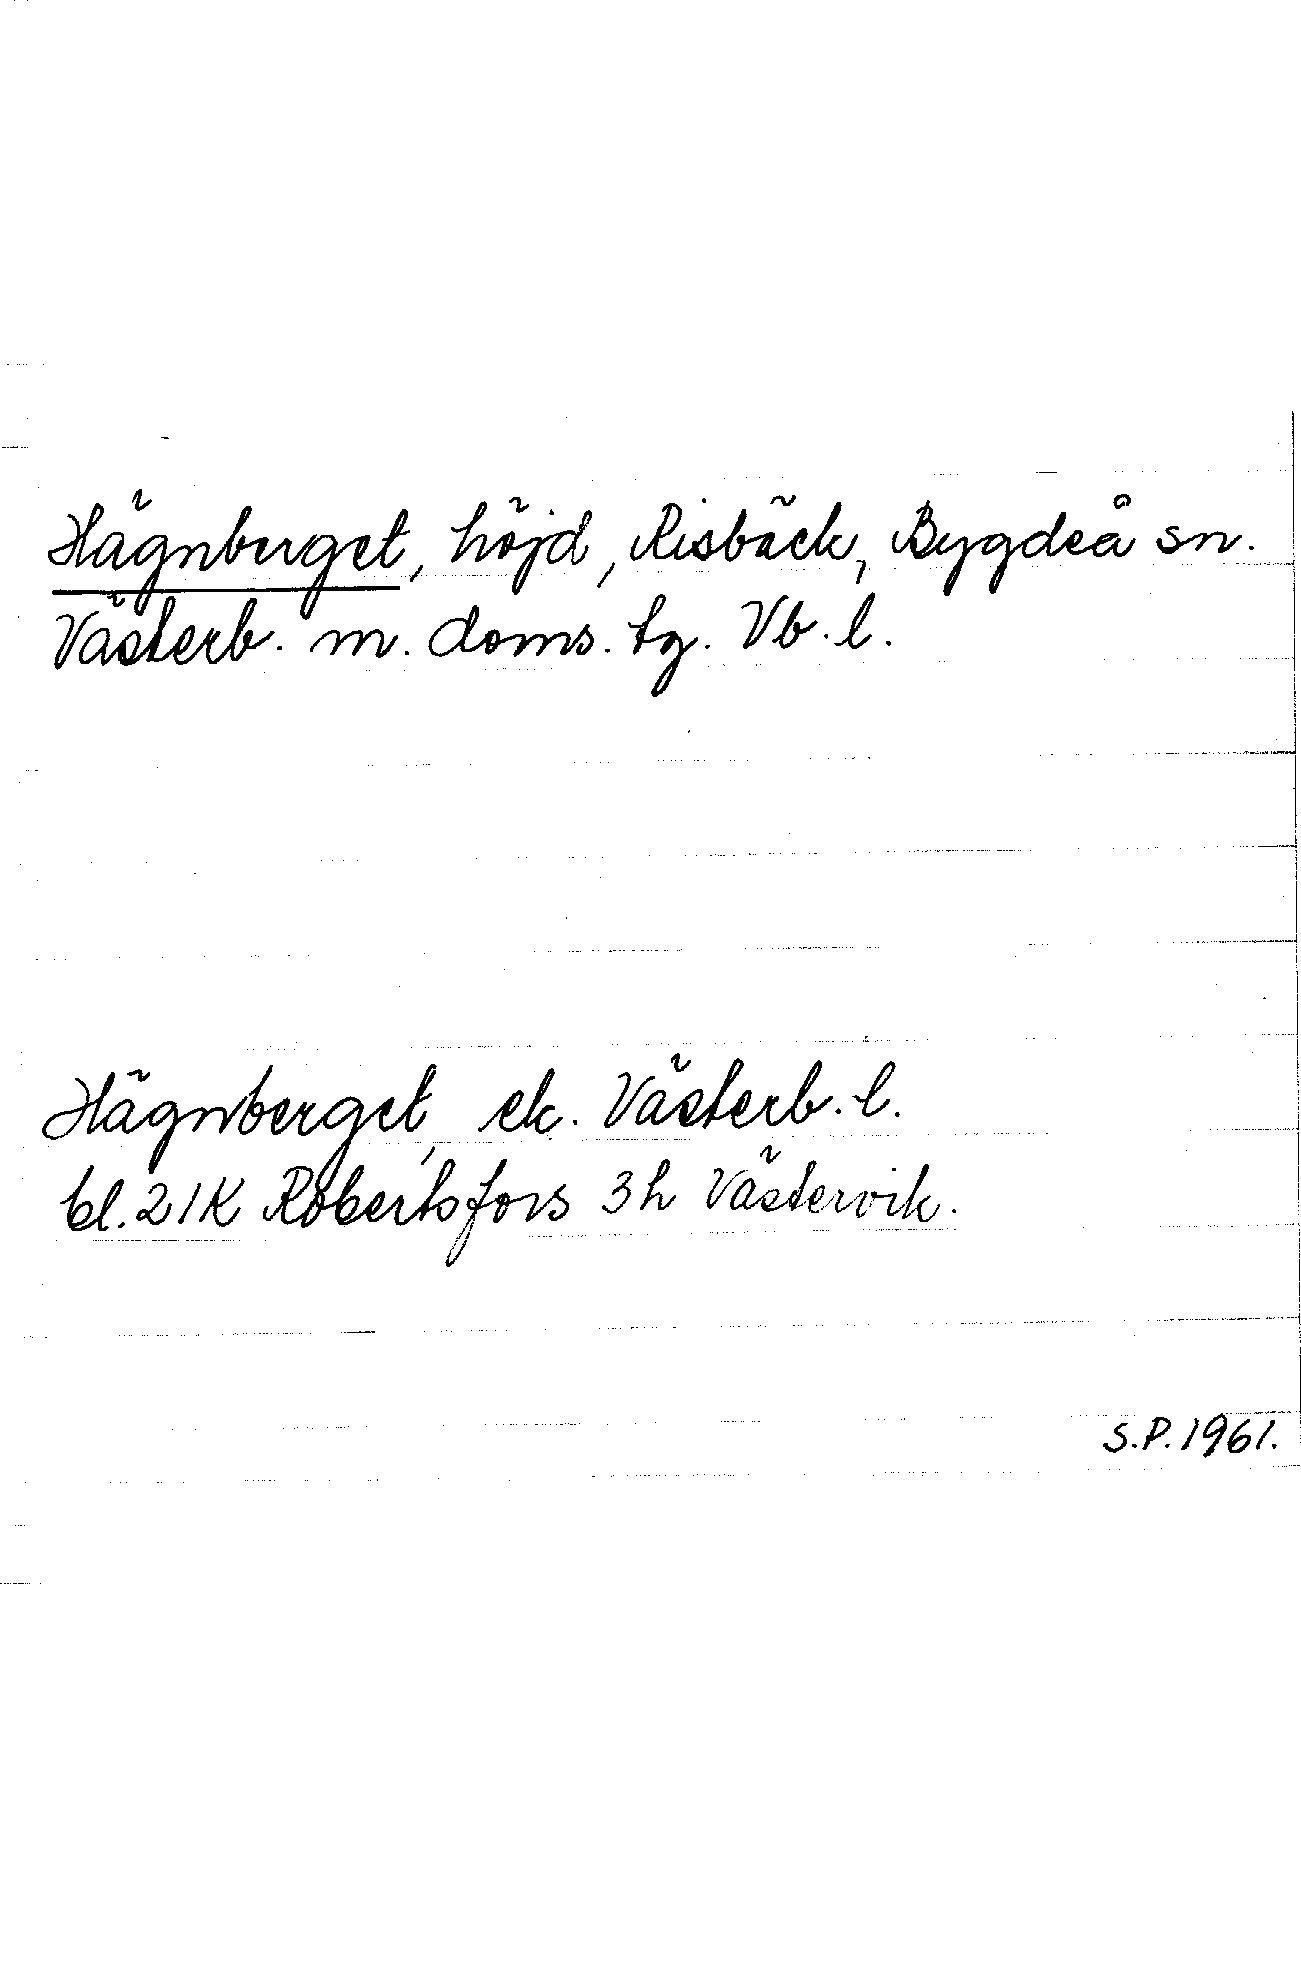 Hägnberget, höjd, Risbäck, Bygdeå sn.
Västerb. m. doms. tg. Vb. l.
Hägnberget, ek. Västerb. l.
bl. 21K Robertsfors 3h Västervik.
S.P. 1961.